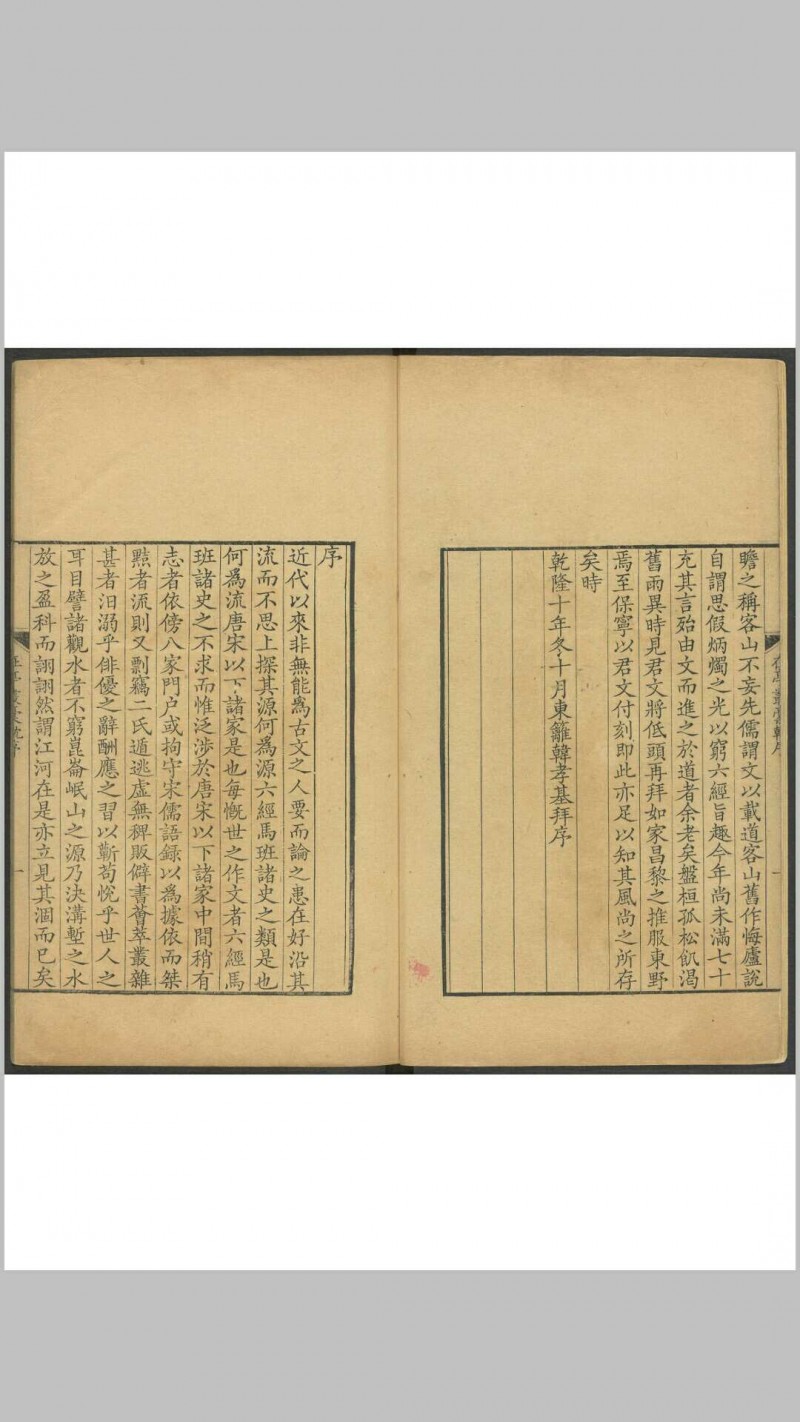 瞻之稱客山不妄先儒謂文以載道客山舊作悔廬說
自謂思假炳燭之光以窮六經旨趣今年尚未滿七十
充其言殆由文而進之於道者余老矣盤桓孤松飢渴
舊雨異時見君文將低頭再拜如家昌黎之推服東野
焉至保寧以君文付刻即此亦足以知其風尚之所存
矣時
乾隆十年冬十月東籬韓孝基拜序
序
近代以來非無能爲古文之人要而論之患在好沿其
流而不思上探其源何爲源六經馬班諸史之類是也
何爲流唐宋以下諸家是也每慨世之作文者六經馬
班諸史之不求而惟泛涉於唐宋以下諸家中間稍有
志者依傍八家門户或拘守宋儒語録以爲據依而桀
黠者流則又剽竊二氏遁逃虛無稗販僻書薈萃叢雜
甚者汨溺乎俳優之辭酬應之習以蘄苟悅乎世人之
耳目譬諸觀水者不窮崑崙岷山之源乃決溝塹之水
放之盈科而詡詡然謂江河在是亦立見其涸而已矣
一